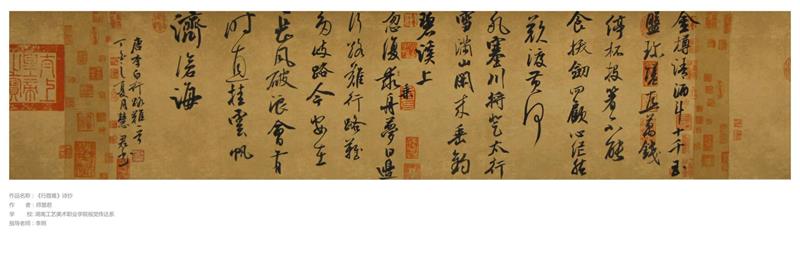 金樽清酒斗十千玉
盤珎羞直萬錢
停杯投箸不能
食拔劍四顧心茫然
欲渡黃河
冰塞川將登太行
雪滿山閑來垂釣
碧溪上
忽復乘舟夢日邊
行路難行路難
多歧路今安在
長風破浪會有
時直挂雲帆
濟滄海
唐李白行路難一首
丁酉之夏月慧君书
作品名称：《行路难》诗抄
作 者：慧君
学 校: 湖南工艺美术职业学院视觉传达系
指导老师：李